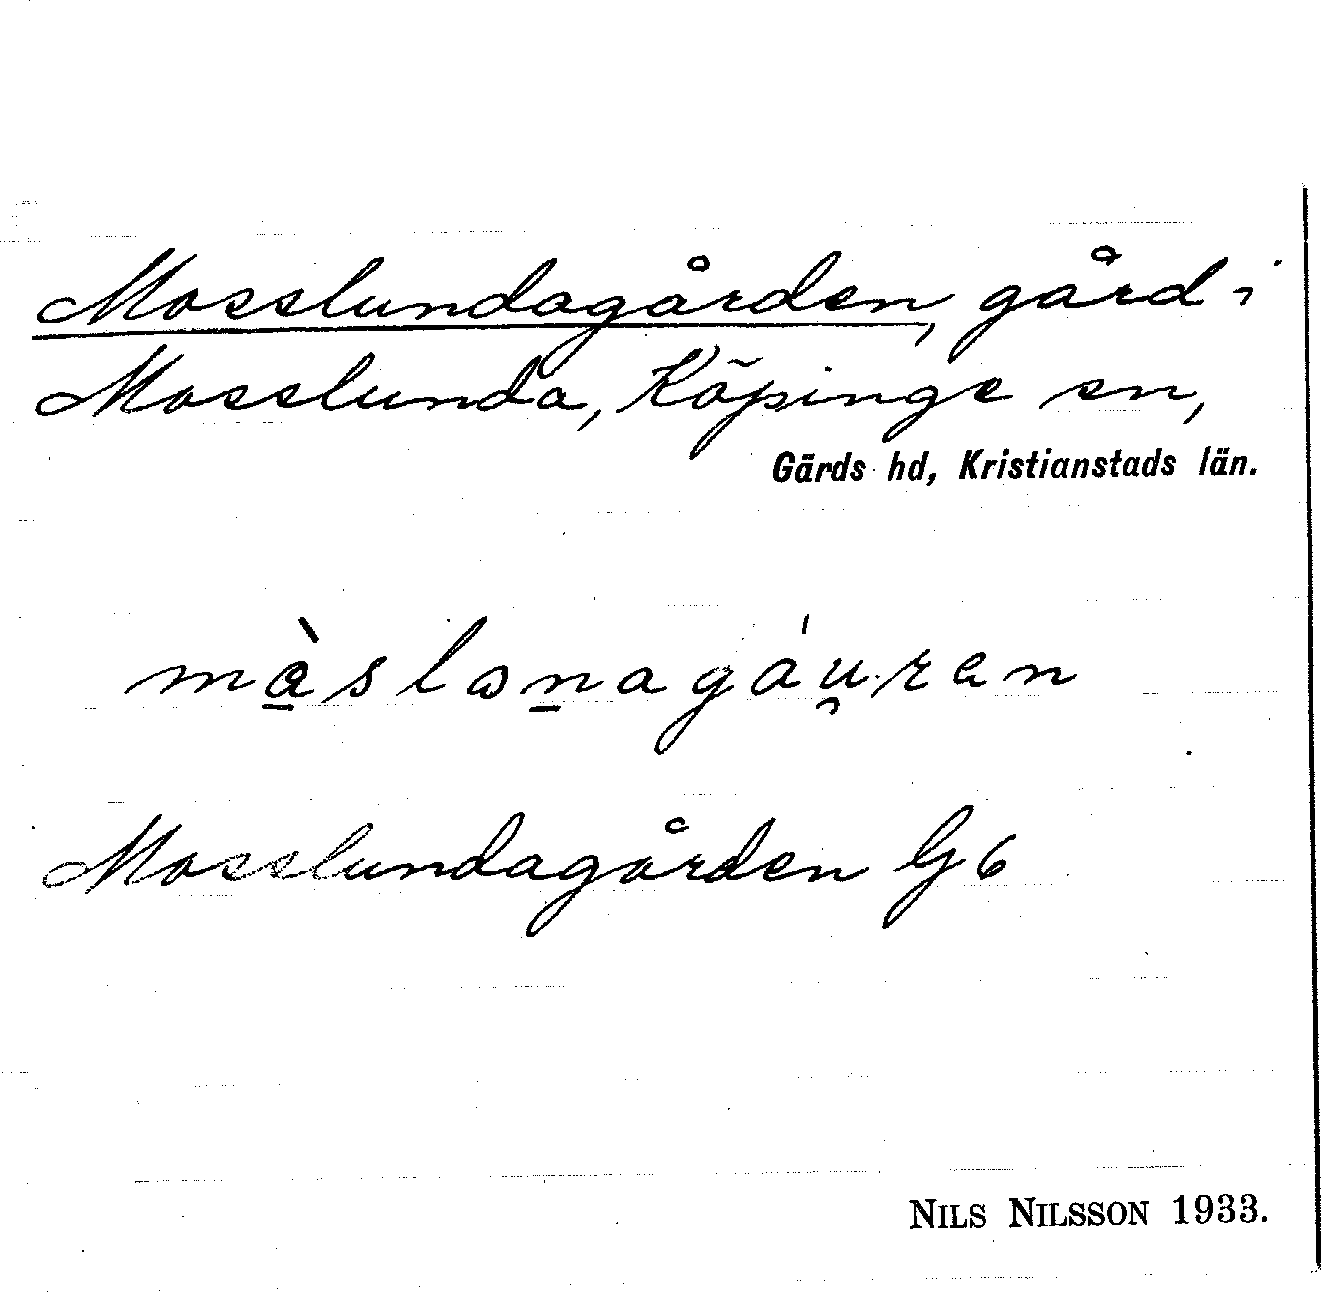 Mosslundagården, gård i
Mosslunda, Köpinge sn,
Gärds hd, Kristianstads län.
mà̱slɷṉagáu̯ren
Mosslundagården G 6
NILS NILSSON 1933.